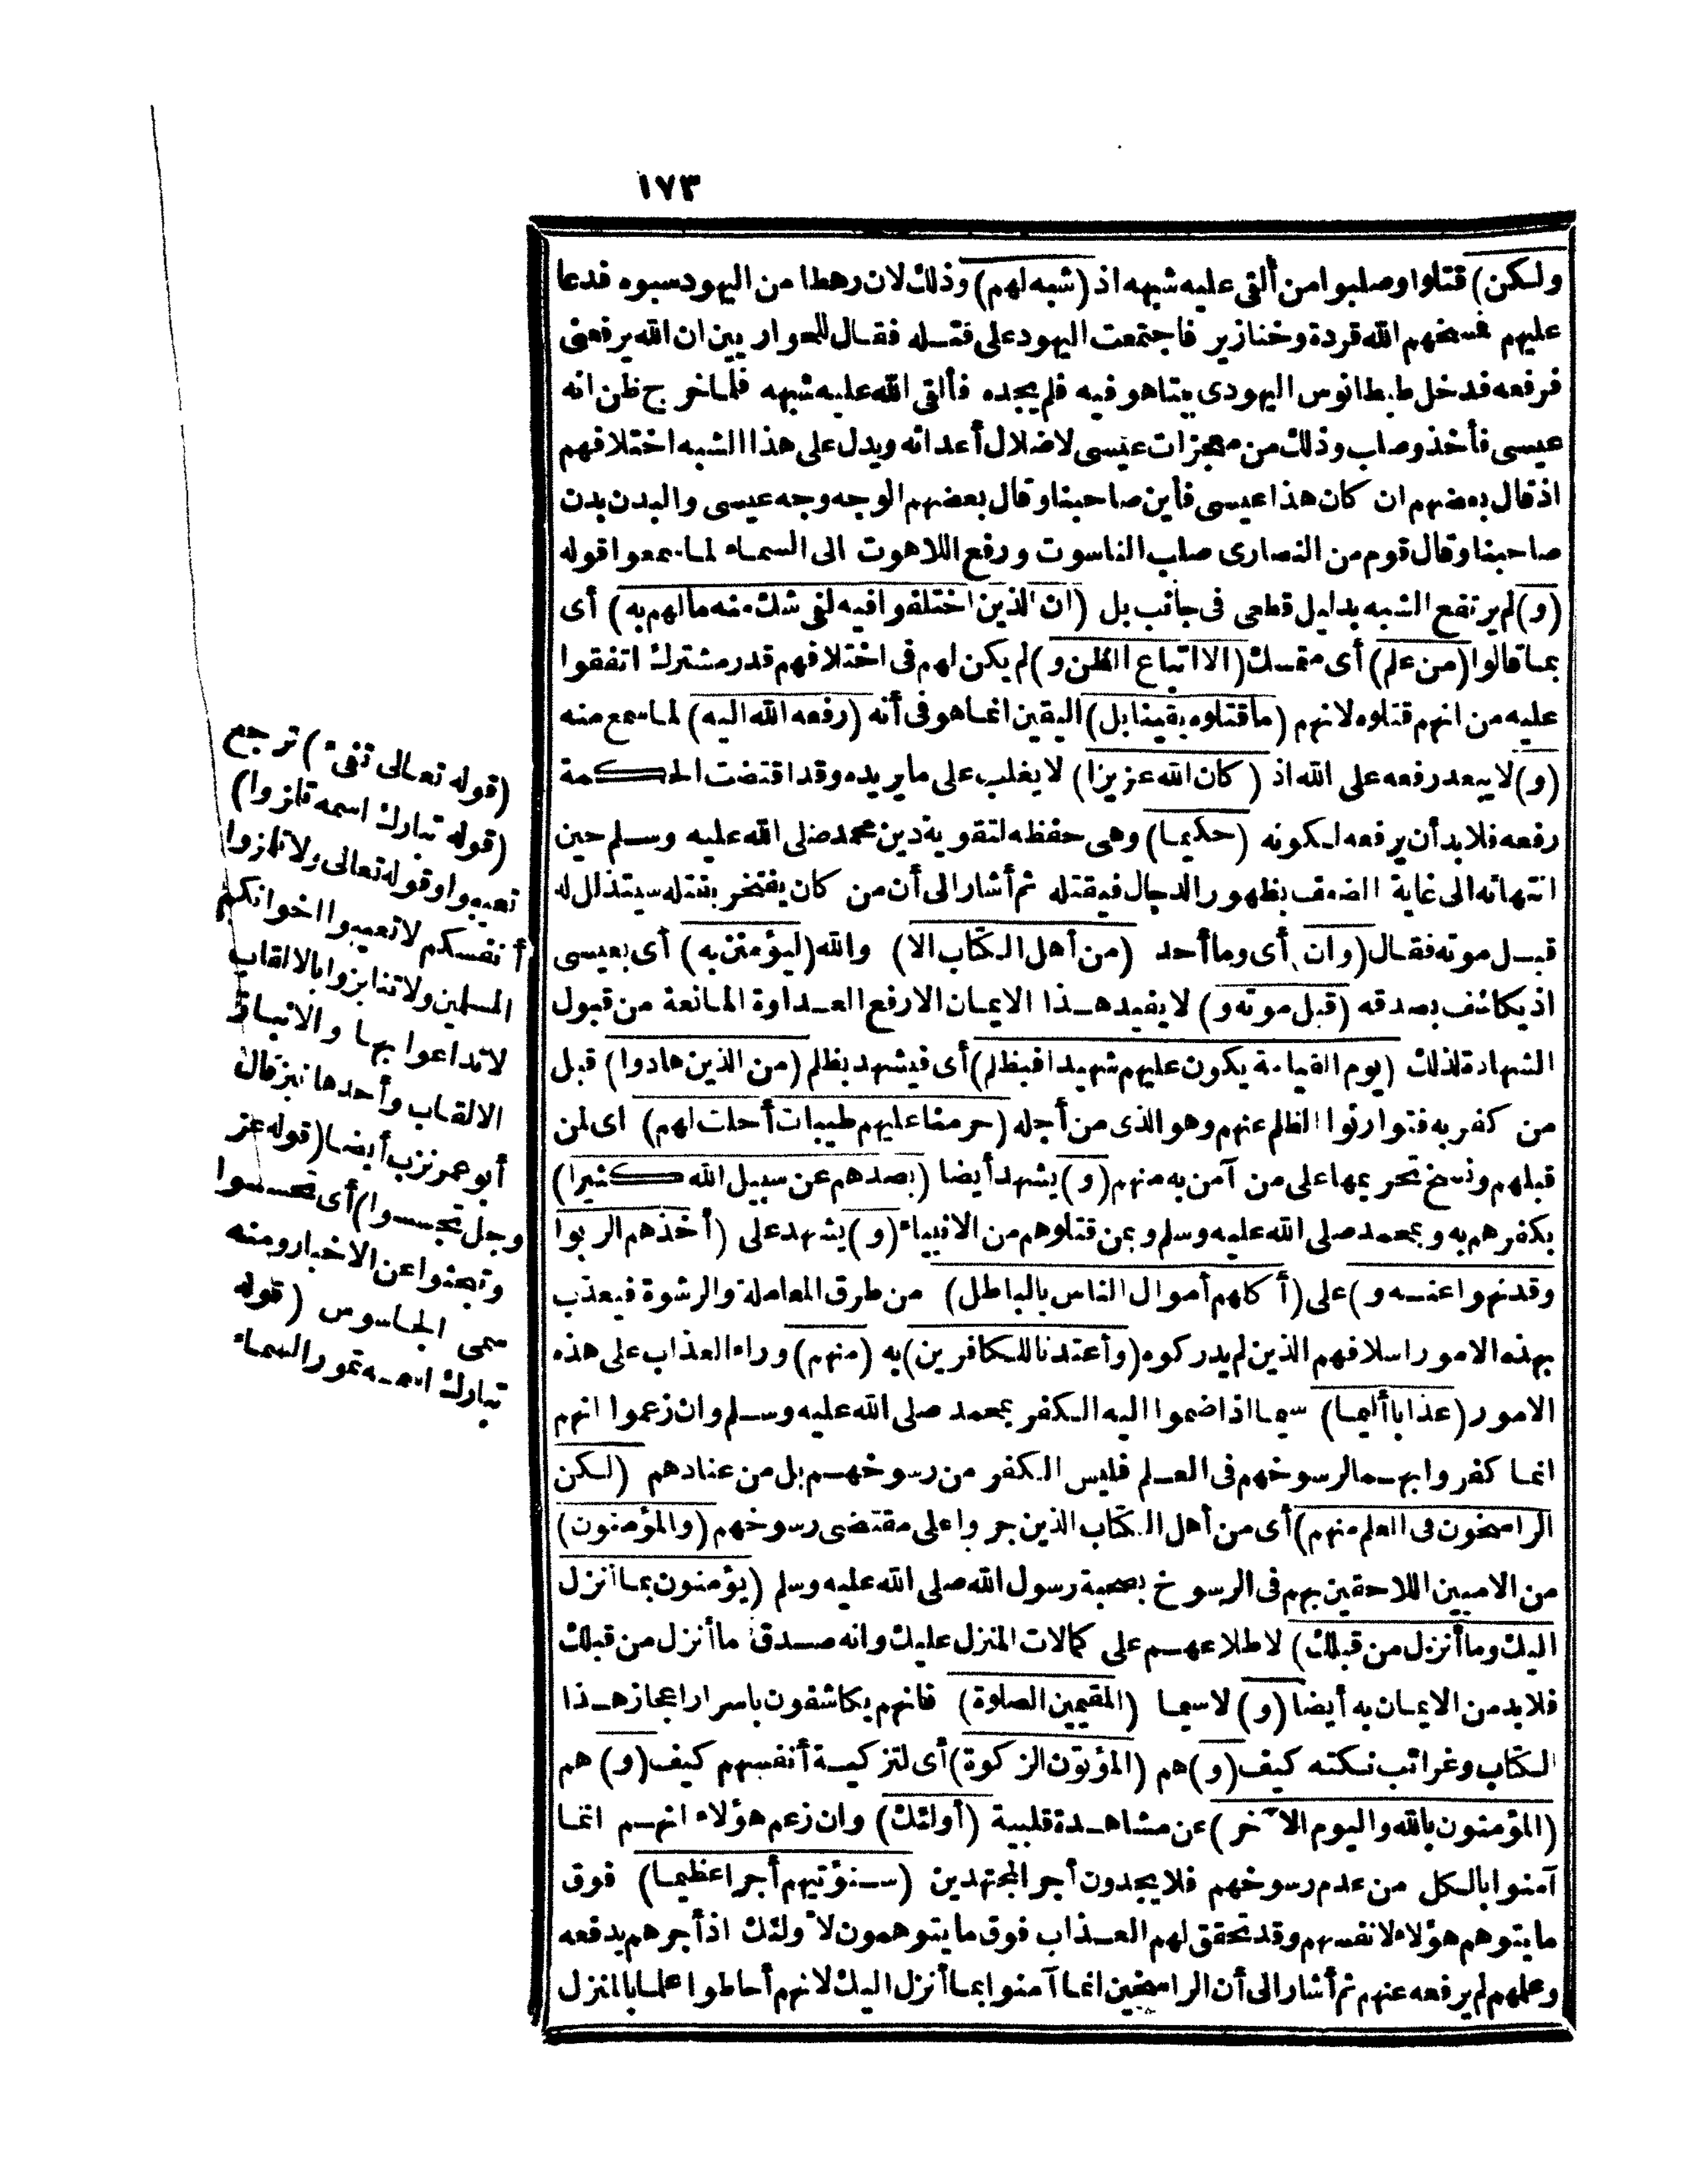 ١٧٣
ولكن) قتلوا وصلبوا من ألقى عليه شبهه اذ (شبه لهم) وذلك لان رهطا من اليهود سبوه فدعا
عليهم فمسخهم الله قردة وخنازير فاجتمعت اليهود على قتله فقال للحوار يين ان الله يرفعنى
فرفعه فدخل طيطانوس اليهودى بيتا هو فيه فلم يجده فألقى الله عليه شبهه فلما خرج ظن انه
عيسى فأخذ وصلب وذلك من معجزات عيسى لاضلال أعدائه ويدل على هذا الشبه اختلافهم
اذ قال بعضهم ان كان هذا عيسى فأين صاحبنا وقال بعضهم الوجه وجه عيسى والبدن بدن
صاحبنا وقال قوم من النصارى صلب الناسوت ورفع اللاهوت الى السماء لما سمعوا قوله
(و) لم يرتفع الشبه بدليل قطعى فى جانب بل (ان الذين اختلفوا فيه لفى شك منه مالهم به) أى
بما قالوا (من علم) أى متمسك (الا اتباع الظن و) لم يكن لهم فى اختلافهم قدر مشترك اتفقوا
عليه من انهم قتلوه لانهم (ما قتلوه يقينا بل) اليقين انما هو فى أنه (رفعه الله اليه) لما سمع منه
(و) لا يبعد رفعه على الله اذ (كان الله عزيزا) لا يغلب على ما يريده وقد اقتضت الحكمة
رفعه فلا بد أن يرفعه لكونه (حكيما) وهى حفظه لتقوية دين محمد صلى الله عليه وسلم حين
انتهائه الى غاية الضعف بظهور الدجال فيقتله ثم أشار الى أن من كان يفتخر بقتله سيتذلل له
قبل موته فقال (وان) أى وما أحد (من أهل الكتاب الا) والله (ليؤمنن به) أى بعيسى
اذ يكاشف بصدقه (قبل موته و) لا يفيد هذا الايمان الا رفع العداوة المانعة من قبول
الشهادة لذلك (يوم القيامة يكون عليهم شهيدا فبظلم) أى فيشهد بظلم (من الذين هادوا) قبل
من كفر به فتوارثوا الظلم عنهم وهو الذى من أجله (حرمنا عليهم طيبات أحلت لهم) اى لمن
قبلهم ونسخ تحريمها على من آمن به منهم (و) يشهد أيضا (بصدهم عن سبيل الله كثيرا)
بكفرهم به وبمحمد صلى الله عليه وسلم وبمن قتلوهم من الانبياء (و) يشهد على (أخذهم الربوا
وقد نهوا عنه و) على (أكلهم أموال الناس بالباطل) من طرق المعاملة والرشوة فيعذب
بهذه الامور اسلافهم الذين لم يدركوه (وأعتدنا للكافرين) به (منهم) وراء العذاب على هذه
الامور (عذابا أليما) سيما اذا ضموا اليه الكفر بمحمد صلى الله عليه وسلم وان زعموا انهم
انما كفروا بهما لرسوخهم فى العلم فليس الكفر من رسوخهم بل من عنادهم (لكن
الراسخون فى العلم منهم) أى من أهل الكتاب الذين جروا على مقتضى رسوخهم (والمؤمنون)
من الاميين اللاحقين بهم فى الرسوخ بصحبة رسول الله صلى الله عليه وسلم (يؤمنون بما أنزل
اليك وما أنزل من قبلك) لاطلاعهم على كمالات المنزل عليك وانه صدق ما أنزل من قبلك
فلا بد من الايمان به أيضا (و) لا سيما (المقيمين الصلوة) فانهم يكاشفون باسرار اعجاز هذا
الكتاب وغرائب نكته كيف (و) هم (المؤتون الزكوة) أى لتزكية أنفسهم كيف (و) هم
(المؤمنون بالله واليوم الآخر) عن مشاهدة قلبية (أولئك) وان زعم هؤلاء انهم انما
آمنوا بالكل من عدم رسوخهم فلا يجدون أجر المجتهدين (سنؤتيهم أجرا عظيما) فوق
ما يتوهم هؤلاء لانفسهم وقد تحقق لهم العذاب فوق ما يتوهمون لأولئك اذ أجرهم يدفعه
وعلمهم لم يرفعه عنهم ثم أشار الى أن الراسخين انما آمنوا بما أنزل اليك لانهم أحاطوا علما بالمنزل
(قوله تعالى تفىء) ترجع
(قوله تبارك اسمه تلمزوا)
تعيبوا وقوله تعالى ولا تلمزوا
أنفسكم لا تعيبوا اخوانكم
المسلمين ولا تنابزوا بالالقاب
لا تداعوا بها والانباز
الالقاب وأحدها نبز قال
أبو عمر نزب أيضا (قوله عز
وجل تجسسوا) أى تحسسوا
وتبحثوا عن الاخبار ومنه
سمى الجاسوس (قوله
تبارك اسمه تمور السماء